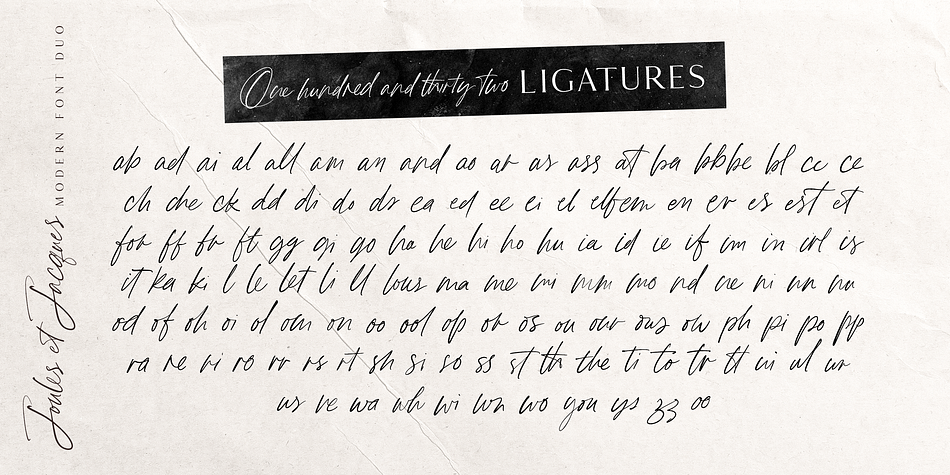 One hundred and thirty two LIGATURES
ab ad ai al all am an and ao ar as ass at ba bbbe bl cc ce
ch che ck dd di do dr ea ed ee ei el en er es est et
for ff fr ft gg gi go ha he hi ho hu ia id ie if im in is
it ka ki l le let li ll lous ma me mi mm mo nd ne ni nn nu
od of oh oi ol om on oo ool op or os ou our ous ow ph pi po pp
ra re ri ro rr rs rt sh si so ss st th the ti to tr tt ui ul ur
us ve wa wh wi wn wo you ys zz oo
Joules et Jacques MODERN FONT DUO